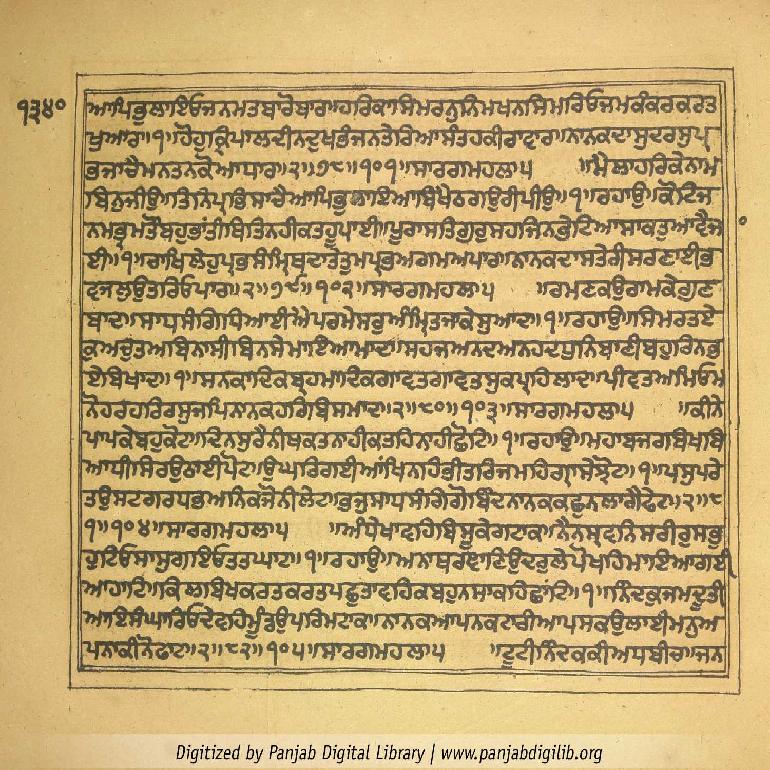 ੧੩੪੦
ਆਪਿਭੁਲਾਇਓਜਨਮਤਬਾਰੋਬਾਰ॥ਹਰਿਕਾਸਿਮਰਨੁਨਿਮਖਨਸਿਮਰਿਓਜਮਕੰਕਰਕਰਤ
ਖੁਆਰ॥੧॥ਹੋਹੁਕ੍ਰਿਪਾਲਦੀਨਦੁਖਭੰਜਨਤੇਰਿਆਸੰਤਹਕੀਰਾਵਾਰ॥ਨਾਨਕਦਾਸੁਦਰਸੁਪ੍ਰ
ਭਜਾਚੈਮਨਤਨਕੋਆਧਾਰ॥੨॥੭੮॥੧੦੧॥ਸਾਰਗਮਹਲਾ੫ ॥ਮੈਲਾਹਰਿਕੇਨਾਮ
ਬਿਨੁਜੀਉ॥ਤਿਨਿਪ੍ਰਭਿਸਾਚੈਆਪਿਭੁਲਾਇਆਬਿਖੈਠਗਉਰੀਪੀਉ॥੧॥ਰਹਾਉ॥ਕੋਟਿਜ
ਨਮਭ੍ਰਮਤੌਬਹੁਭਾਂਤੀਥਿਤਿਨਹੀਕਤਹੂਪਾਈ॥ਪੂਰਾਸਤਿਗੁਰੁਸਹਜਿਨਭੇਟਿਆਸਾਕਤੁਆਵੈਜਾ
ਈ॥੧॥ਰਾਖਿਲੇਹੁਪ੍ਰਭਸੰਮ੍ਰਿਥਦਾਤੇਤੁਮਪ੍ਰਭਅਗਮਅਪਾਰ॥ਨਾਨਕਦਾਸਤੇਰੀਸਰਣਾਈਭ
ਵਜਲੁਉਤਰਿਓਪਾਰ॥੨॥੭੯॥੧੦੨॥ਸਾਰਗਮਹਲਾ੫ ॥ਰਮਣਕਉਰਾਮਕੇਗੁਣ
ਬਾਦ॥ਸਾਧਸੰਗਿਧਿਆਈਐਪਰਮੇਸਰੁਅੰਮ੍ਰਿਤਜਾਕੇਸੁਆਦ॥੧॥ਰਹਾਉ॥ਸਿਮਰਤਏ
ਕੁਅਚੁਤਅਬਿਨਾਸੀਬਿਨਸੇਮਾਇਆਮਾਦ॥ਸਹਜਅਨਦਅਨਹਦਧੁਨਿਬਾਣੀਬਹੁਰਿਨਭ
ਏਬਿਖਾਦ॥੧॥ਸਨਕਾਦਿਕਬ੍ਰਹਮਾਦਿਕਗਾਵਤਗਾਵਤਸੁਕਪ੍ਰਹਿਲਾਦ॥ਪੀਵਤਅਮਿਓਮ
ਨੋਹਰਹਰਿਰਸੁਜਪਿਨਾਨਕਹਰਿਬਿਸਮਾਦ॥੨॥੮੦॥੧੦੩॥ਸਾਰਗਮਹਲਾ੫ ॥ਕੀਨੇ
ਪਾਪਕੇਬਹੁਕੋਟ॥ਦਿਨਸੁਰੈਨੀਥਕਤਨਾਹੀਕਤਹਿਨਾਹੀਛੋਟ॥੧॥ਰਹਾਉ॥ਮਹਾਬਜਰਬਿਖਬਿ
ਆਧੀਸਿਰਿਉਠਾਈਪੋਟ॥ਉਘਰਿਗਈਆਂਖਿਨਹਿਭੀਤਰਿਜਮਹਿਗ੍ਰਾਸੇਝੋਟ॥੧॥ਪਸੁਪਰੇ
ਤਉਸਟਗਰਧਭਅਨਿਕਜੋਨੀਲੇਟ॥ਭਜੁਸਾਧਸੰਗਿਗੋਬਿੰਦਨਾਨਕਕਛੁਨਲਾਗੈਫੇਟ॥੨॥੮
੧॥੧੦੪॥ਸਾਰਗਮਹਲਾ੫ ॥ਅੰਧੇਖਾਵਹਿਬਿਸੂਕੇਗਟਾਕ॥ਨੈਨਸ੍ਰਵਨਿਸਰੀਰੁਸਭੁ
ਹੁਟਿਓਸਾਸੁਗਇਓਤਤਘਾਟ॥੧॥ਰਹਾਉ॥ਅਨਾਥਰਞਾਣਿਉਦਰੁਲੇਪੋਖਹਿਮਾਇਆਗਈ
ਆਹਾਟਿ॥ਕਿਲਬਿਖਕਰਤਕਰਤਪਛੁਤਾਵਹਿਕਬਹੁਨਸਾਕਹਿਛਾਂਟਿ॥੧॥ਨਿੰਦਕੁਜਮਦੂਤੀ
ਆਇਸੰਘਾਰਿਓਦੇਵਹਿਮੂੰਡਉਪਰਿਮਟਾਕ॥ਨਾਨਕਆਪਨਕਟਾਰੀਆਪਸਕਉਲਾਈਮਨੁਅ
ਪਨਾਕੀਨੋਫਾਟ॥੨॥੮੨॥੧੦੫॥ਸਾਰਗਮਹਲਾ੫ ॥ਟੂਟੀਨਿੰਦਕਕੀਅਧਬੀਚ॥ਜਨ
Digitized by Panjab Digital Library | www.panjabdigilib.org